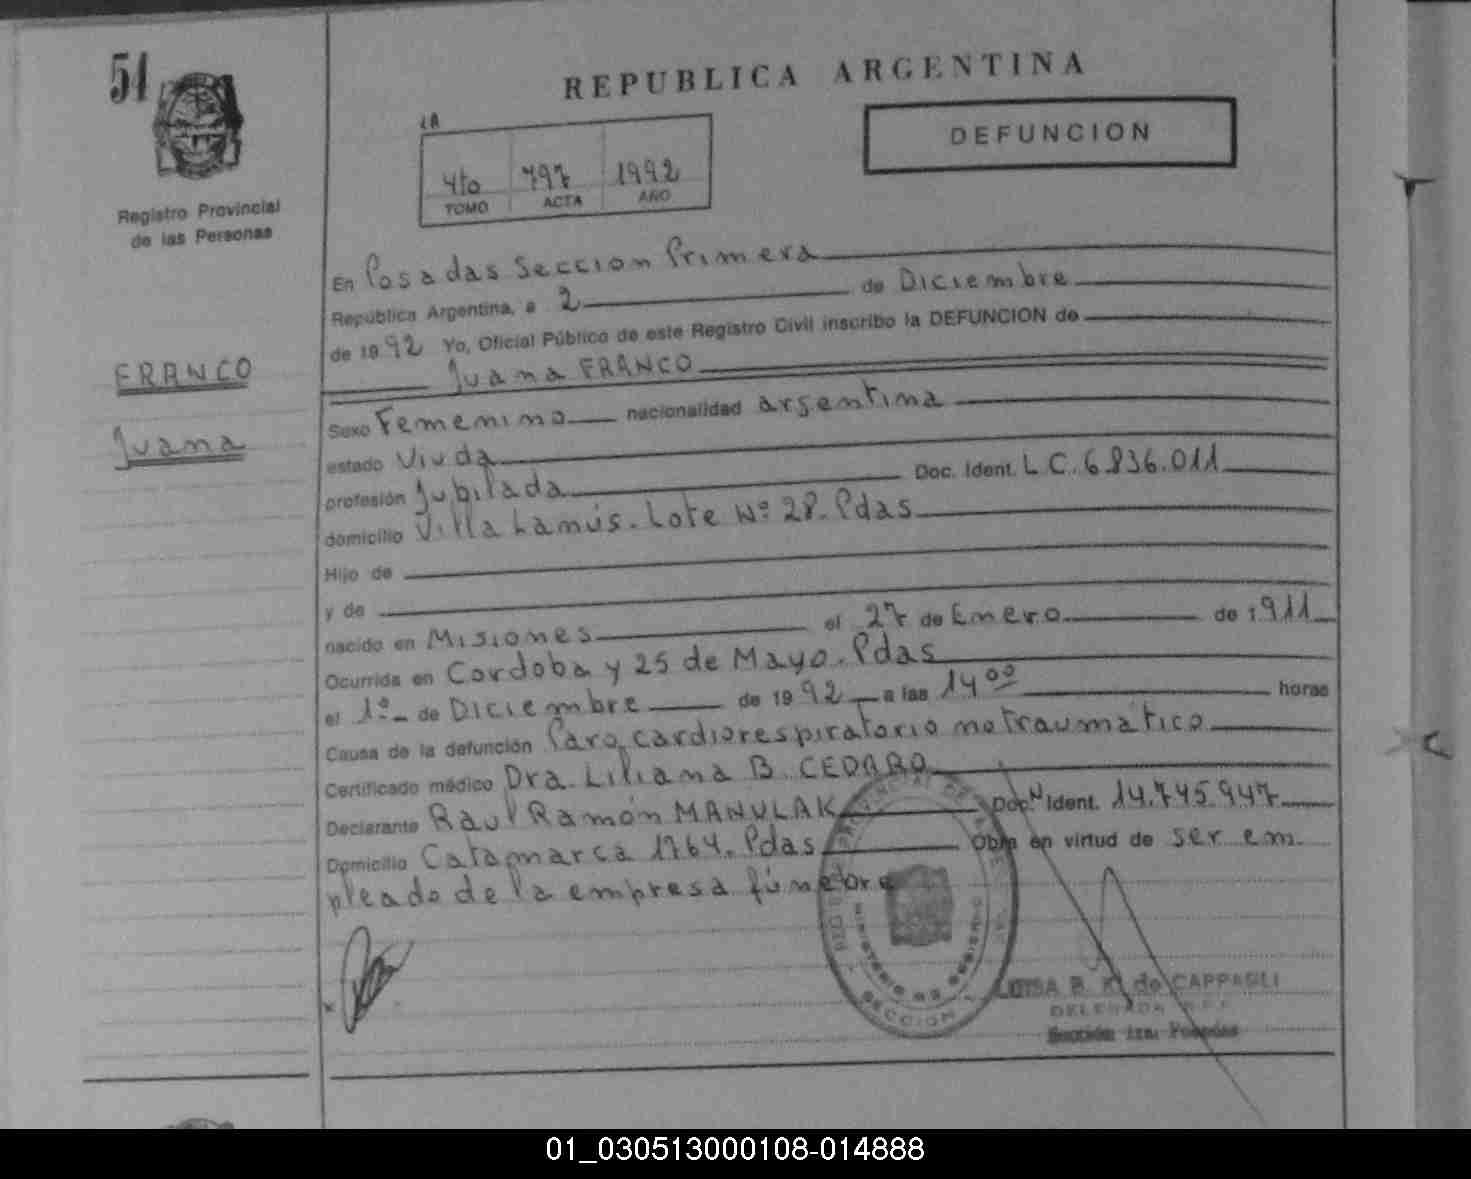 51
REPUBLICA ARGENTINA
1A
DEFUNCION
4to 797 1992
TOMO ACTA AÑO
Registro Provincial
de las Personas
En Posadas Seccion Primera
República Argentina, a 2 de Diciembre
de 1992 Yo, Oficial Público de este Registro Civil inscribo la DEFUNCION de
Juana FRANCO
FRANCO
Juana
Sexo Femenino nacionalidad argentina
estado Viuda
profesión Jubilada Doc. Ident. L C. 6.836.011
domicilio Villa Lanús. Lote Nº 28. Pdas
Hijo de
y de
nacido en Misiones el 27 de Enero de 1911
Ocurrida en Cordoba y 25 de Mayo. Pdas
el 1º de Diciembre de 1992 a las 14 00 horas
Causa de la defunción Paro cardiorespiratorio no traumático
Certificado médico Dra. Liliana B. CEDARO
Declarante Raul Ramón MANULAK Doc. Ident. 14.745.947
Domicilio Catamarca 1764. Pdas Obra en virtud de ser em
pleado de la empresa fúnebre
MINISTERIO DE GOBIERNO
SECCION
LUISA B. K. de CAPPAGLI
DELEGADA
Sección 1ra. Posadas
01_030513000108-014888